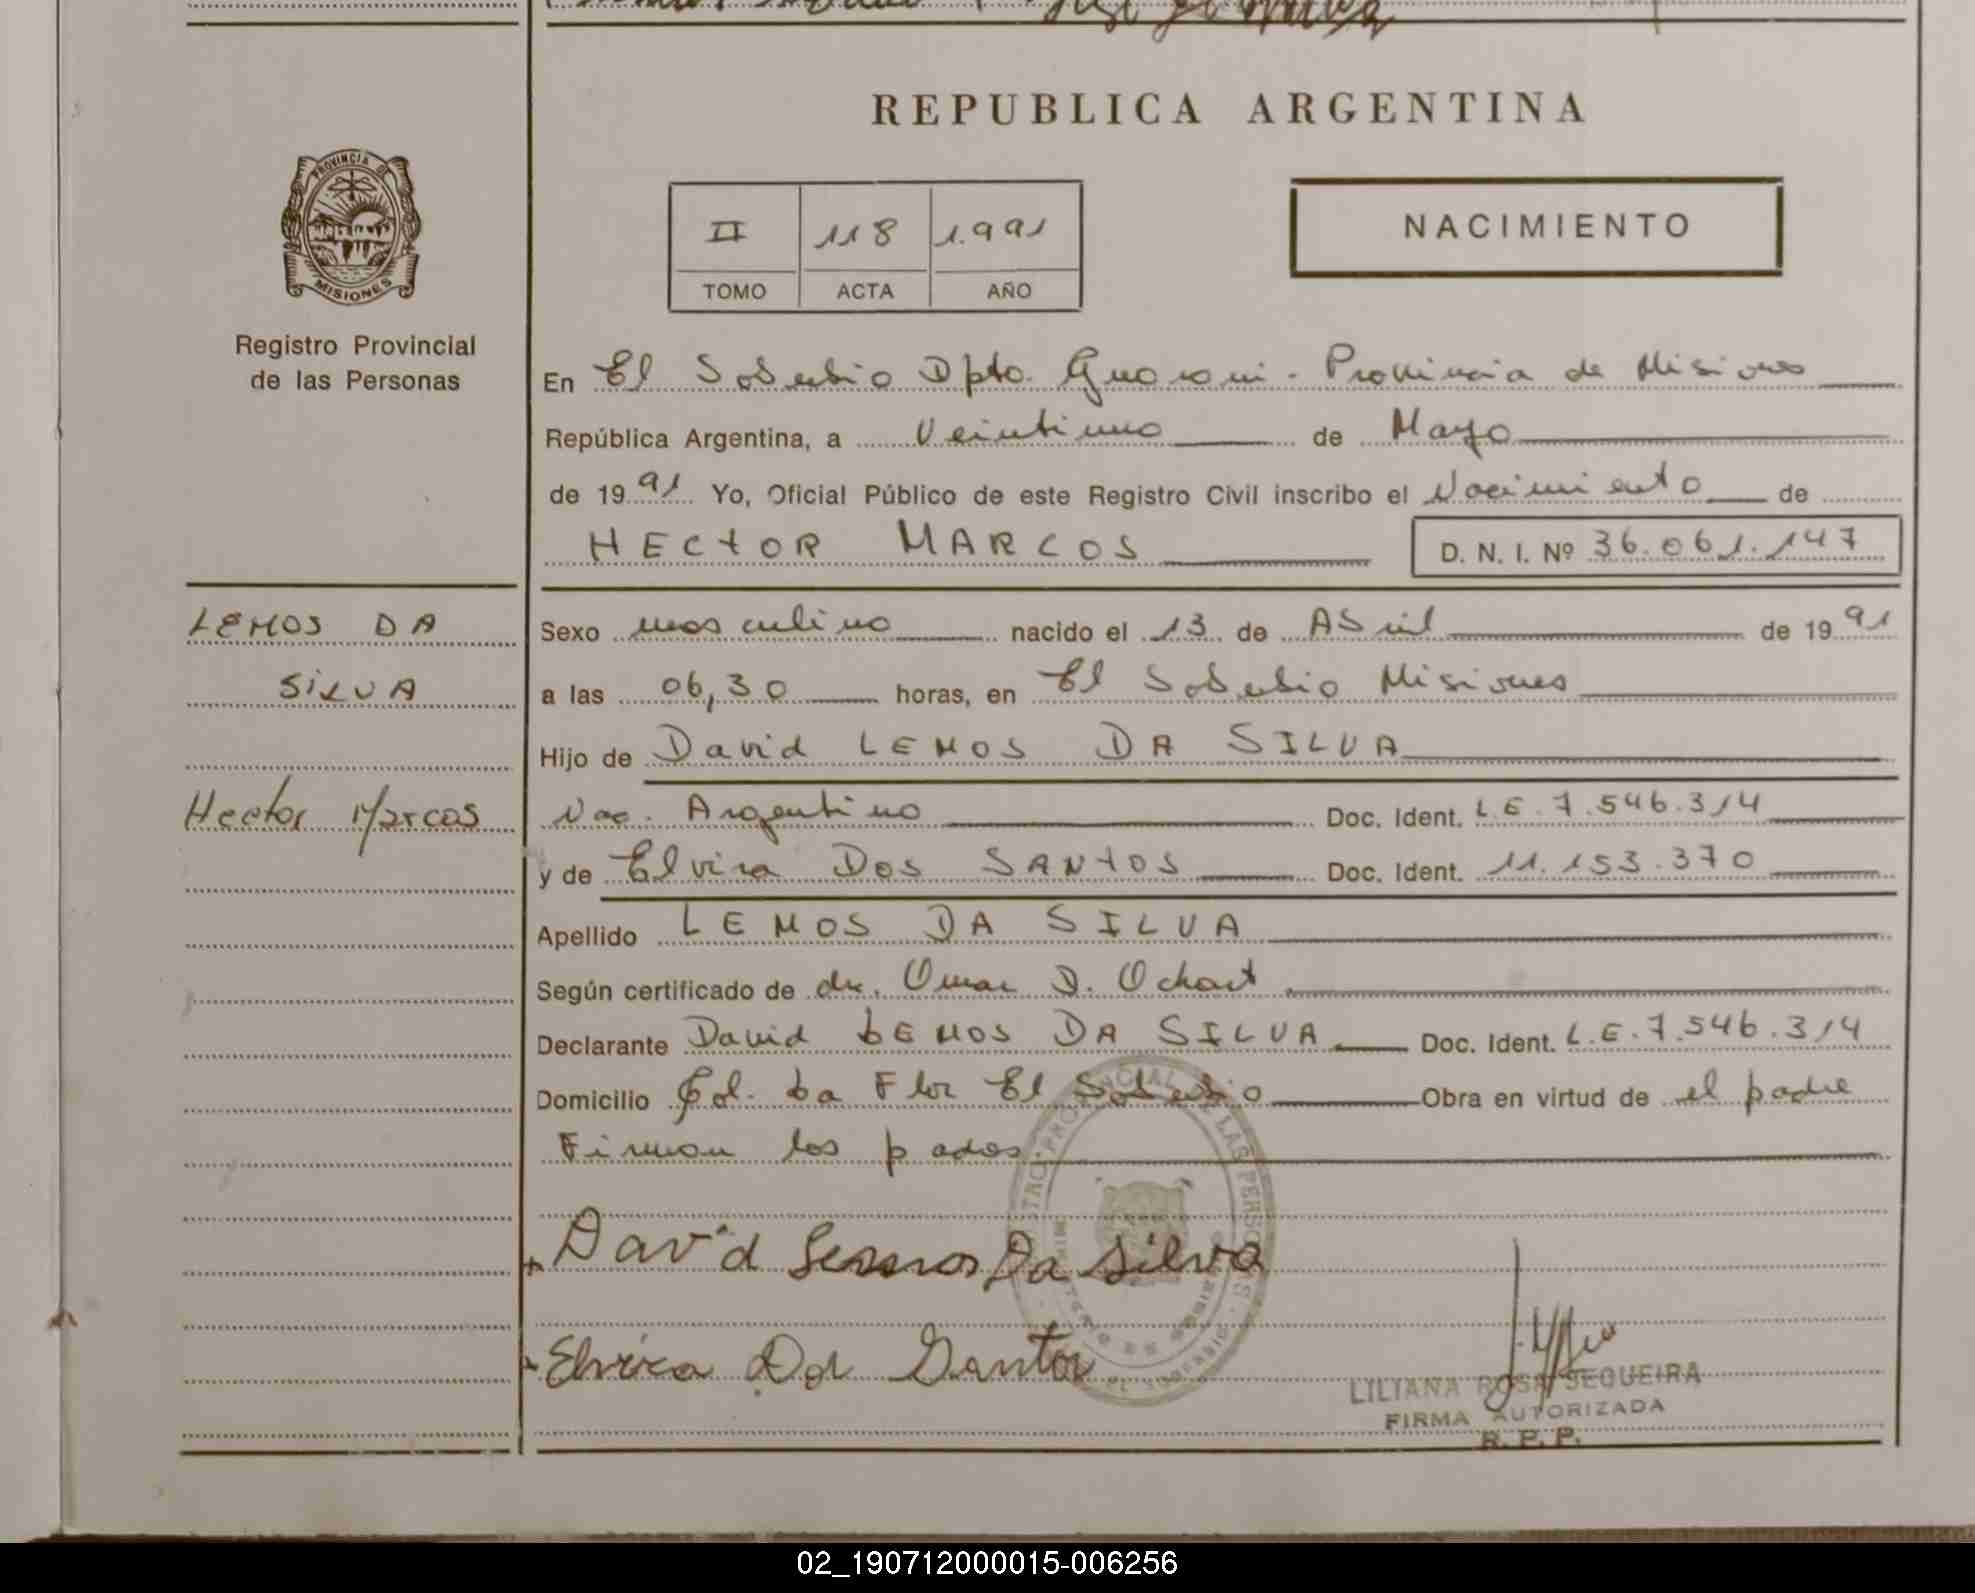 REPUBLICA ARGENTINA
PROVINCIA DE
MISIONES
Registro Provincial
de las Personas
II 118 1.991
TOMO ACTA AÑO
NACIMIENTO
En El Soberbio Dpto. Guarani - Provincia de Misiones
República Argentina, a Veintiuno de Mayo
de 1991 Yo, Oficial Público de este Registro Civil inscribo el Nacimiento de
HECTOR MARCOS D. N. I. Nº 36.061.147
LEMOS DA
SILVA
Hector Marcos
Sexo masculino nacido el 13 de Abril de 1991
a las 06,30 horas, en El Soberbio Misiones
Hijo de David LEMOS DA SILVA
Nac. Argentino Doc. Ident. L.E. 7.546.314
y de Elvira DOS SANTOS Doc. Ident. 11.153.370
Apellido LEMOS DA SILVA
Según certificado de dr. Omar D. Ochart
Declarante David LEMOS DA SILVA Doc. Ident. L.E. 7.546.314
Domicilio Col. La Flor El Soberbio Obra en virtud de el padre
Firman los pades
David Lemos Da Silva
Elvira Dos Santos
LILIANA ROSA SEQUEIRA
FIRMA AUTORIZADA
R. P. P.
02_190712000015-006256